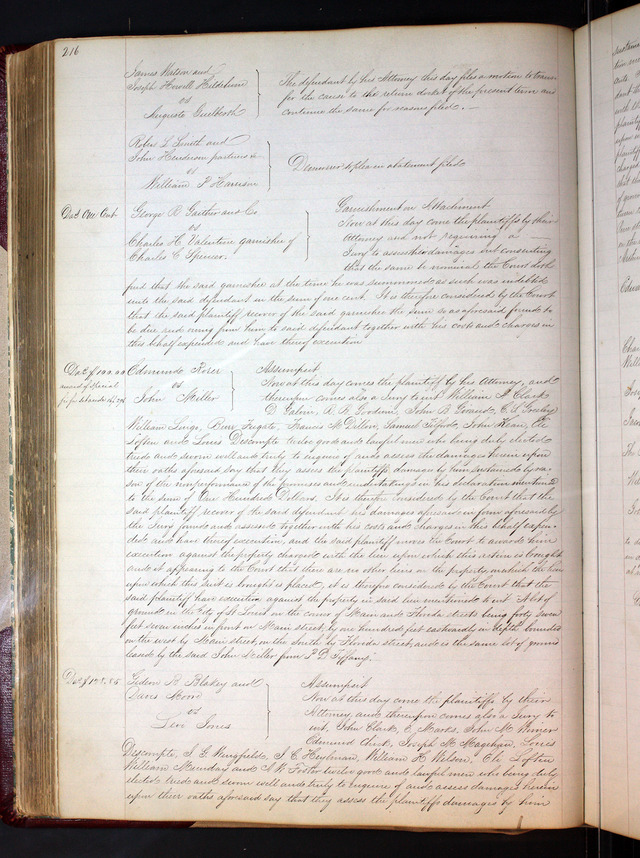 216
James Watson and
Joseph Howell
vs
Auguste
The defendant by his Attorney this day files a motion to trans-
fer the cause to the return docket of the present term and
continue the same for reasons filed.
Rufus L Smith and
John Henderson partners &c
vs
William P Harrison
Demurrer to plea in abatement filed
Das One Cent
George R Gaither and Co
vs
Charles H. Valentine garnishee of
Charles C Spencer.
Garnishment on Attachment
Now at this day come the plaintiffs by their
Attorney and not requiring a
Jury to assess their damages but consenting
that the same be nominal the Court doth
find that the said garnishee at the time he was summoned as such was indebted
unto the said defendant in the sum of one cent. It is therefore considered by the Court
that the said plaintiff recover of the said garnishee the sum so as aforesaid found to
be due and owing from him to said defendant together with his costs and charges in
this behalf expended and have thereof execution
Das $100.00
award of special
Edmund Rose
vs
John Miller
Assumpsit
Now at this day comes the plaintiff by his Attorney, and
thereupon comes also a Jury to wit William A Clark
D
William Lings, Ben Fugate, Francis McDillon, Samuel John Kean, Eli
Loften and Louis Descompte twelve good and lawful men who being duly elected
tried and sworn well and truly to enquire of and assess the damages herein upon
their oaths aforesaid say that they assess the plaintiffs damages by him sustained by rea-
son of the nonperformance of the promises and undertakings in his declaration mentioned
to the sum of One Hundred Dollars. It is therefore considered by the Court that the
said plaintiff recover of the said defendant his damages aforesaid in form aforesaid by
the Jury found and assessed together with his costs and charges in this behalf expen-
ded and have thereof execution, and the said plaintiff moves the Court to award him
execution against the property charged with the lien upon which this action is brought
and it appearing to the Court that there are no other liens on the property on which the lien
upon which this suit is brought is placed, it is therefore considered by the Court that the
said plaintiff have execution against the property in said lien mentioned to wit A lot of
ground in the City of St Louis on the corner of Main and Florida streets being forty seven
feet seven inches in front on Main street, by one hundred feet eastwardly in depth bounded
on the west by Main street, on the South by Florida street, and is the same lot of ground
leased by the said John Miller from P D Tiffany.
Das $128.85
Gideon H Blakey and
Davis Moore
vs
Levi Jones
Assumpsit
Now at this day come the plaintiffs by their
Attorney, and thereupon comes also a Jury to
wit, John Clark, E Marks, John M Wimer
Edmund Joseph M Magehan, Louis
Descompte, J. G. Wingfield, J. C. Heislman, William H Wilson, Eli Loften
William Munday and A W Foster twelve good and lawful men who being duly
elected tried and sworn well and truly to enquire of and assess damages herein
upon their oaths aforesaid say that they assess the plaintiffs damages by him